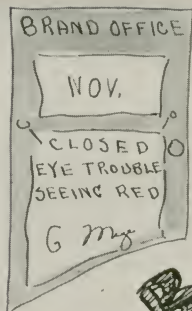 BRAND OFFICE
NOV.
CLOSED
EYE TROUBLE
SEEING RED
G